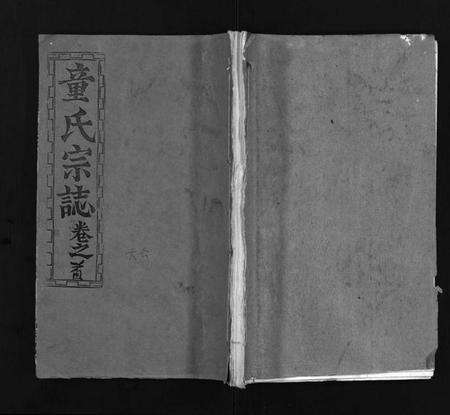 童氏宗誌卷之首